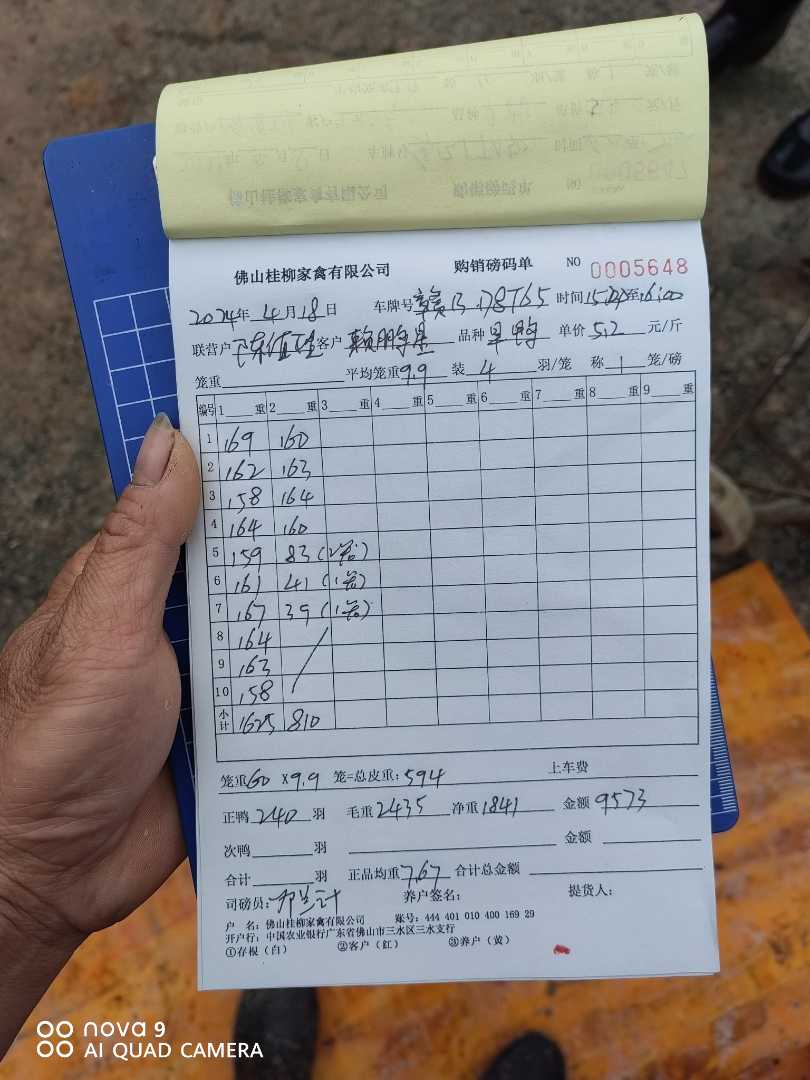 佛山桂柳家禽有限公司 购销磅码单 NO 0005648
2024年4月18日 车牌号 赣B·D8765 时间 至16:00
联营户 客户 赖鹏 品种 旱鸭 单价 5.2 元/斤
笼重 平均笼重 9.9 装 4 羽/笼 称 1 笼/磅
编号 1 重 2 重 3 重 4 重 5 重 6 重 7 重 8 重 9 重
1 169 160
2 162 163
3 158 164
4 164 160
5 159 83 (2笼)
6 161 41 (1笼)
7 167 39 (1笼)
8 164
9 163
10 158
小计 1625 810
笼重 60 X 9.9 笼=总皮重: 594 上车费
正鸭 240 羽 毛重 2435 净重 1841 金额 9573
次鸭 羽 金额
合计 羽 正品均重 7.67 合计总金额
司磅员: 养户签名: 提货人:
户 名: 佛山桂柳家禽有限公司 账号: 444 401 010 400 169 29
开户行: 中国农业银行广东省佛山市三水区三水支行
①存根（白） ②客户（红） ③养户（黄）
nova 9
AI QUAD CAMERA